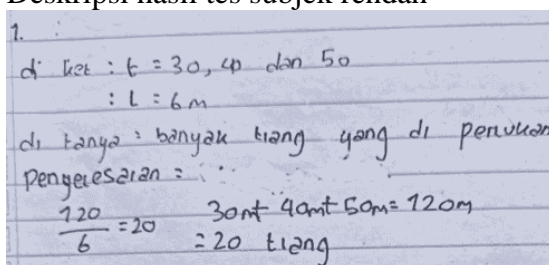 Deskripsi hasil tes subjek rendah
1.
di ket : t = 30, 40 dan 50
: l = 6 m
di tanya : banyak tiang yang di perlukan
Pengelesaian :
120/6 = 20 30m + 40m + 50m = 120m
= 20 tiang